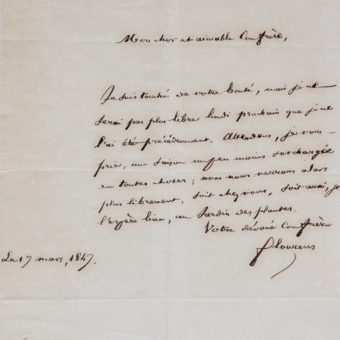 Mon cher et aimable Confrère,
Je suis touché de votre bonté, mais je ne
serai pas plus libre lundi prochain que je ne
l'ai été précédemment. Attendons, je vous
prie, une saison un peu moins surchargée
en toutes choses; nous nous verrons alors
plus librement, soit chez vous, soit aussi, je
l'espère bien, au Jardin des plantes.
Votre dévoué Confrère
Flourens
Le 17 mars, 1847.